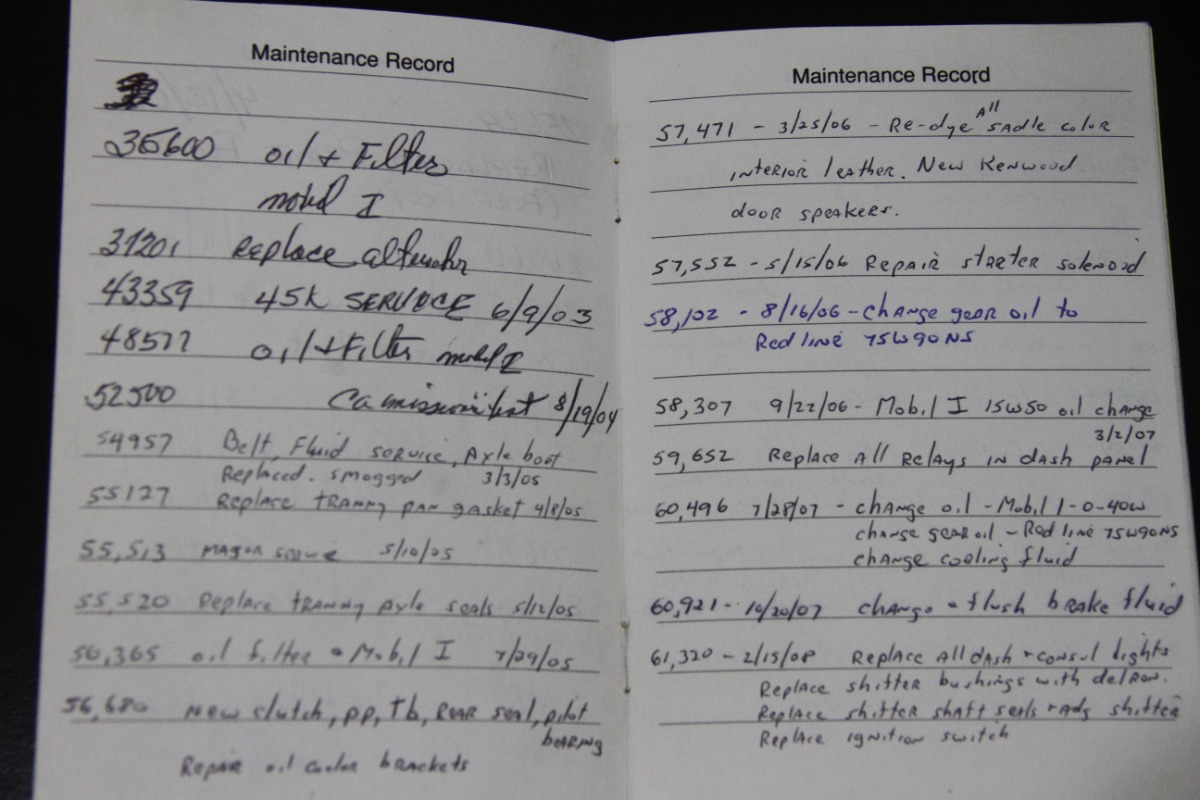 Maintenance Record
36600 oil + Filter
mobil I
37201 Replace alternator
43359 45K SERVICE 6/9/03
48577 oil + Filter mobil I
52500 Ca mission test 8/19/04
54957 Belt, Fluid service, Axle boot
Replaced. smogged 3/3/05
55127 Replace tranny pan gasket 4/8/05
55,513 major service 5/10/05
55,520 Replace tranny Axle seals 5/12/05
56,365 oil filter + Mobil I 7/29/05
56,680 New clutch, pp, Tb, Rear seal, pilot
bearing
Repair oil cooler brackets
Maintenance Record
57,471 - 3/25/06 - Re-dye All sadle color
interior leather. New Kenwood
door speakers.
57,552 - 5/15/06 Repair starter solenoid
58,102 - 8/16/06 - Change gear oil to
Red line 75W90NS
58,307 9/22/06 - Mobil I 15W50 oil change
3/2/07
59,652 Replace All Relays in dash panel
60,496 7/28/07 - change oil - Mobil 1-0-40W
change gear oil - Red line 75W90NS
change cooling fluid
60,921 - 10/20/07 change + flush brake fluid
61,320 - 2/15/08 Replace All dash + consul lights
Replace shifter bushings with delron.
Replace shifter shaft seals + adj shifter
Replace ignition switch